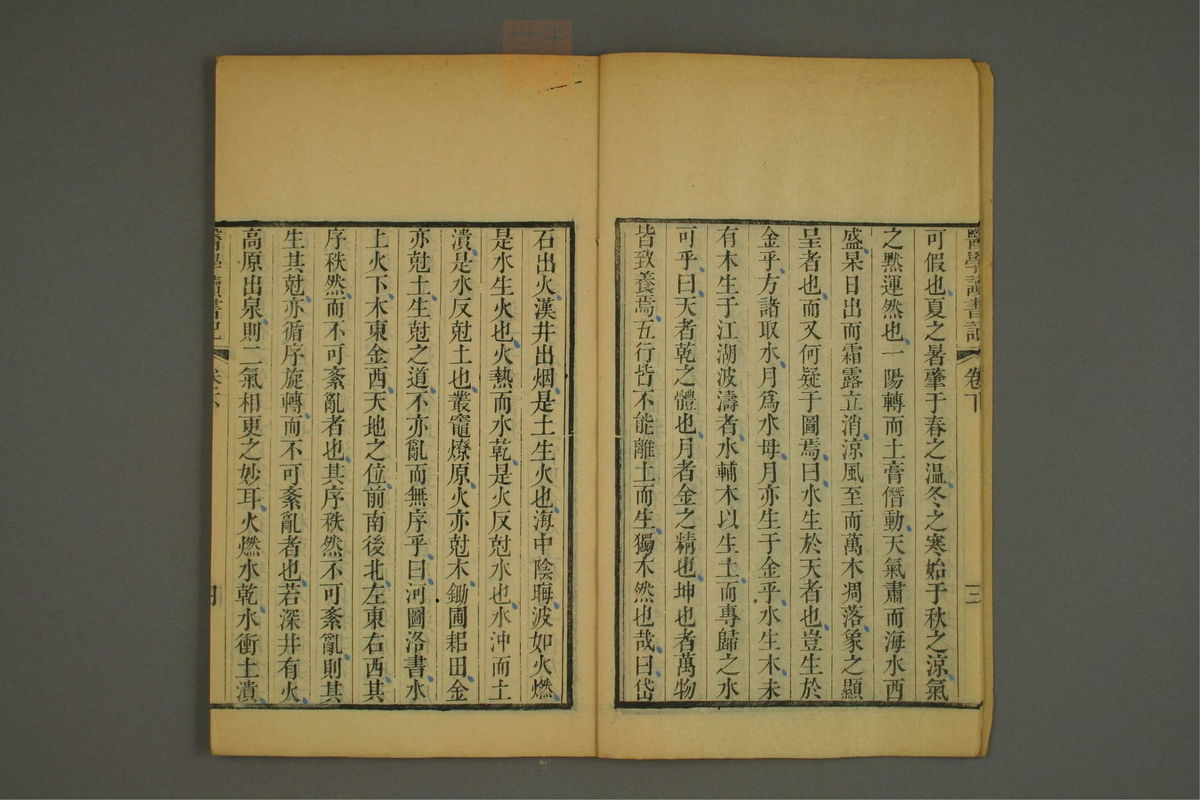 醫學讀書記
卷下
三
可假也夏之暑肇于春之温冬之寒始于秋之涼氣
之黙運然也一陽轉而土膏僭動天氣肅而海水西
盛杲日出而霜露立消涼風至而萬木凋落象之顯
呈者也而又何疑于圖焉曰水生於天者也豈生於
金乎方諸取水月爲水母月亦生于金乎水生木未
有木生于江湖波濤者水輔木以生土而專歸之水
可乎曰天者乾之體也月者金之精也坤也者萬物
皆致養焉五行皆不能離土而生獨木然也哉曰岱
石出火漢井出烟是土生火也海中陰晦波如火燃
是水生火也火熱而水乾是火反尅水也水沖而土
潰是水反尅土也叢竈燎原火亦尅木鋤圃耜田金
亦尅土生尅之道不亦亂而無序乎曰河圖洛書水
上火下木東金西天地之位前南後北左東右西其
序秩然而不可紊亂者也其序秩然不可紊亂則其
生其尅亦循序旋轉而不可紊亂者也若深井有火
高原出泉則二氣相更之妙耳火燃水乾水衝土潰
醫學讀書記
卷下